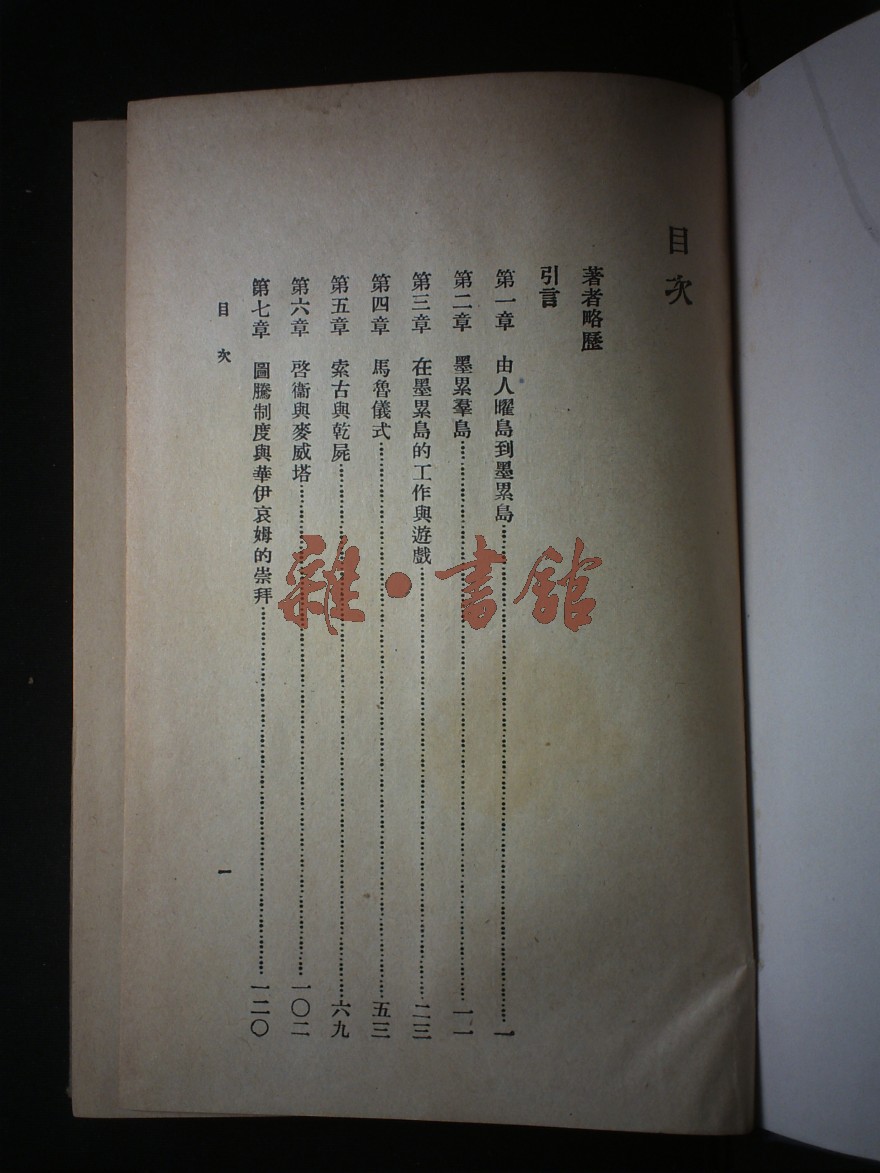 目次
著者略歷
引言
第一章 由人曜島到墨累島…………一
第二章 墨累羣島…………一一
第三章 在墨累島的工作與遊戲…………二三
第四章 馬魯儀式…………五三
第五章 索古與乾屍…………六九
第六章 啓衞與麥威塔…………一〇二
第七章 圖騰制度與華伊哀姆的崇拜…………一二〇
目次 一
雜·書館